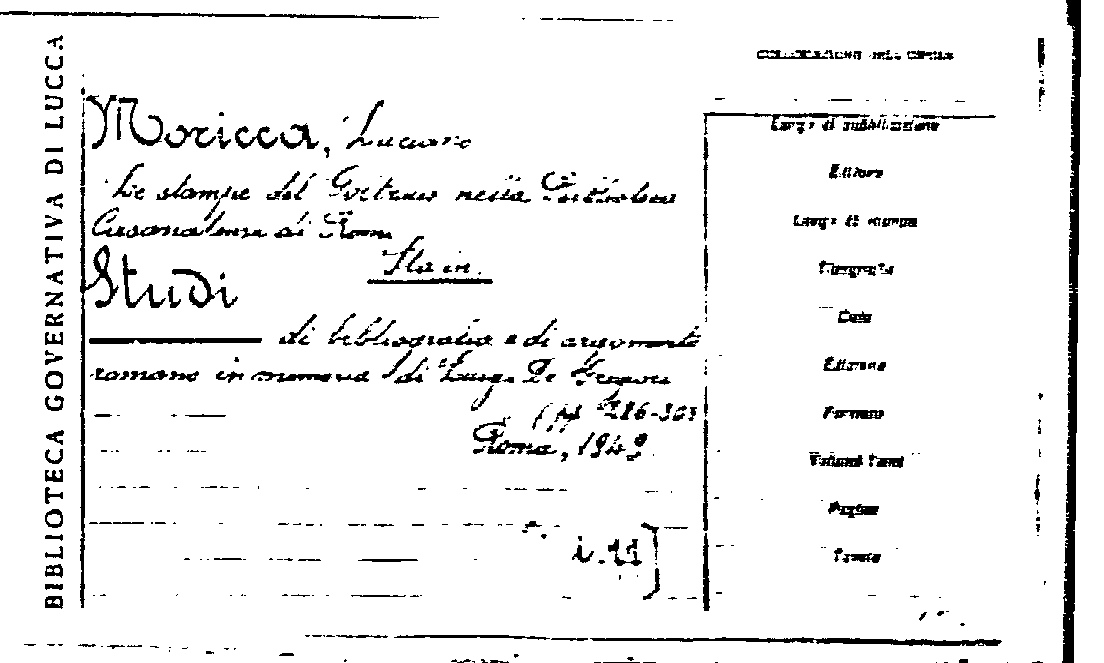 BIBLIOTECA GOVERNATIVA DI LUCCA
Moricca, Luciano
Le stampe del nella
di Roma
Sta in:
Studi
di bibliografia e di argomento
romano in memoria di Luigi De Gregori
(pp. 286-303
Roma, 1949
COLLOCAZIONE DELL'OPERA
Luogo di pubblicazione
Editore
Luogo di stampa
Tipografia
Data
Edizione
Formato
Volumi Tomi
Pagine
Tavole